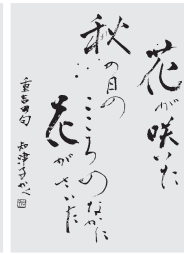 花が咲いた
秋の日の
こころのなかに
花がさいた
重吉の句 和津子かく